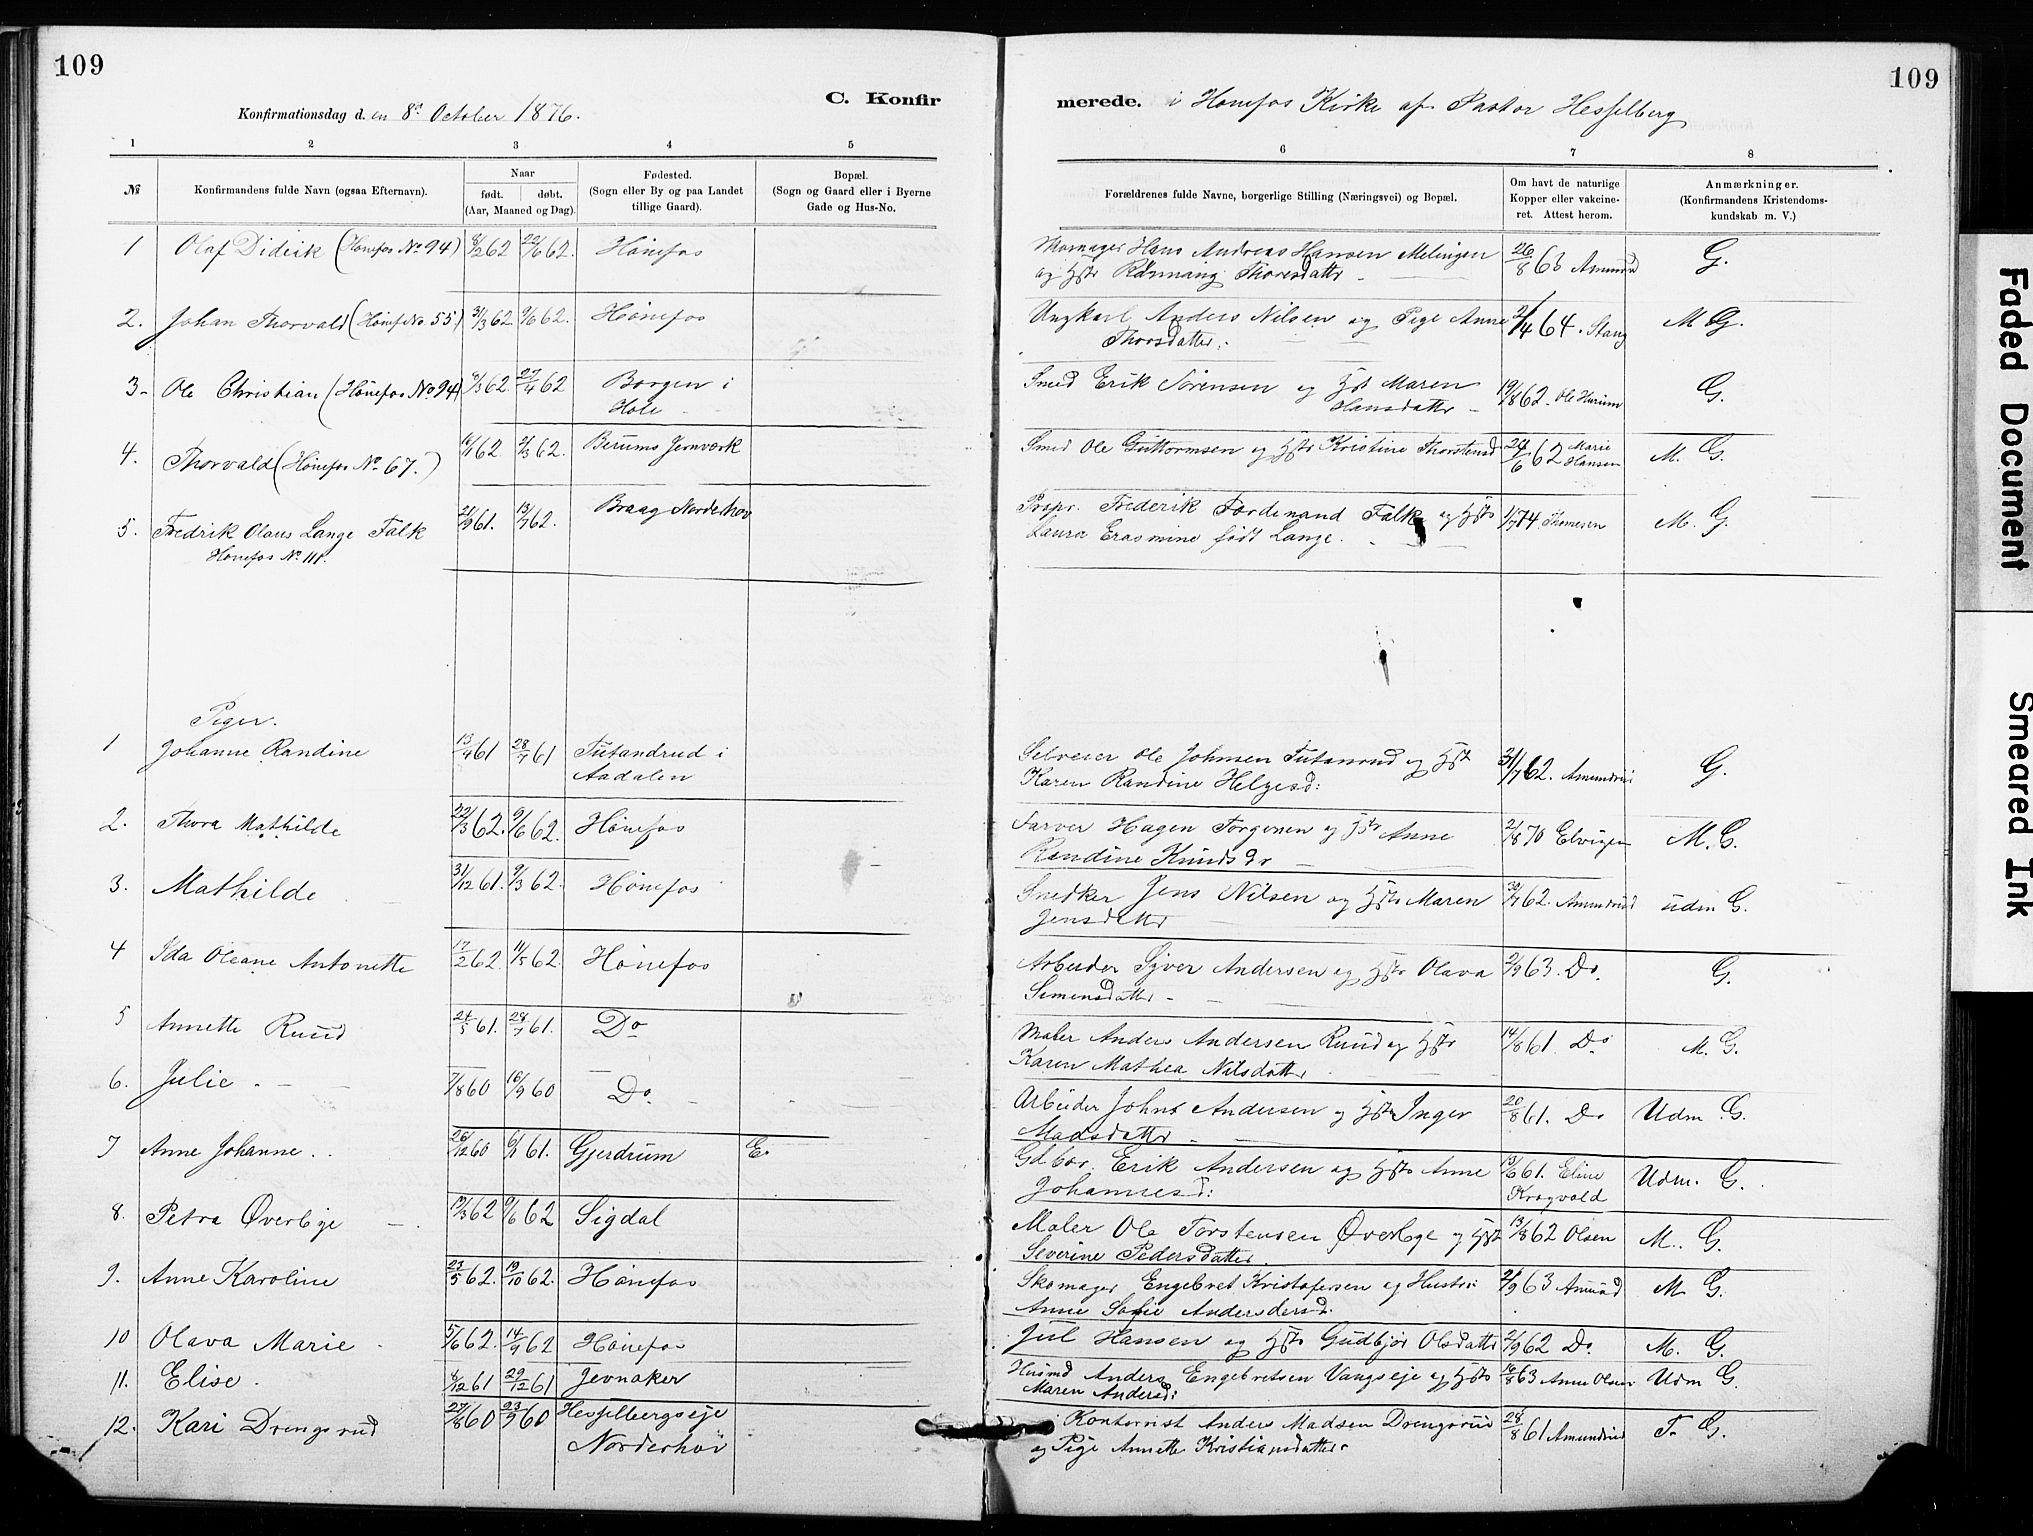 109
109
C. Konfirmerede. i Hønefos Kirke af Pastor Hesselberg
Konfirmationsdag d. en 8de October 1876.
1 2 3 4 5 6 7 8
№
Konfirmandens fulde Navn (ogsaa Efternavn).
Naar
født. døbt.
(Aar, Maaned og Dag).
Fødested.
(Sogn eller By og paa Landet
tillige Gaard).
Bopæl.
(Sogn og Gaard eller i Byerne
Gade og Hus-No.
Forældrenes fulde Navne, borgerlige Stilling (Næringsvei) og Bopæl.
Om havt de naturlige
Kopper eller vakcine-
ret. Attest herom.
Anmærkninger.
(Konfirmandens Kristendoms-
kundskab m. V.)
1 Olaf Didrik (Hønefos No 94) 8/2 62 22/6 62. Hønefos Hans Andreas Hansen Melingen 26/8 63 Amunrd G.
og Hstr Rønnaug Thoresdattr
2. Johan Thorvald (Hønef No. 55) 31/3 62 9/6 62. Hønefos Ungkarl Anders Nilsen og Pige Anne 2/4 64. Stang M G.
Thorsdatter.
3- Ole Christian (Hønefos No 94) 9/3 62 27/4 62 Borgen i Smed Erik Sørensen og Hst Maren 19/8 62. Ole Hurum G.
Hole Hansdattr
4. Thorvald (Hønefos No 67.) 16/1 62. 2/3 62. Berums Jernværk Smed Ole Guttormsen og Hstr Kristine Thorstensd 24/6 62 Marie M. G.
Hansen
5. Fredrik Olaus Lange Falk 21/9 61. 13/7 62. Braag Norderhov Propr. Frederik Ferdinand Falk og Hstr 1/7 74 Thomesen M. G.
Hønefos No 111. Laura Erasmine født Lange.
Piger.
1 Johanne Randine 13/4 61 28/7 61 Tutandrud i Selveier Ole Johnsen Tutanrud og Hst 31/7 62. Amundrud G.
Aadalen Karen Randine Helgesd:
2. Thora Mathilde 22/3 62. 9/6 62. Hønefos Farver Hagen Torgersen og Hstr Anne 2/8 70 Elvigen M. G.
Randine Knudsdr
3. Mathilde 31/12 61. 9/3 62. Hønefos Snedker Jens Nilsen og Hstr Maren 30/7 62. Amundrud udm G.
Jensdattr
4 Ida Oleane Antonette 17/2 62. 11/5 62. Hønefos Arbeider Syver Andersen og Hstr Olava 2/9 63. Do. G.
Simensdattr
5 Annette Ruud 24/5 61. 28/7 61. Do Maler Anders Andersen Ruud og Hstr 14/8 61. Do M. G.
Karen Mathea Nilsdattr
6. Julie. 7/8 60 16/9 60 Do. Arbeider Johns Andersen og Hstr Inger 20/8 61. Do Udm G.
Madsdattr
7 Anne Johanne. 26/12 60 6/1 61. Gjerdrum E. Gdbr. Erik Andersen og Hstr Anne 13/6 61. Eline Udm. G.
Johannesd: Kragvald
8. Petra Øverbye 19/3 62 9/6 62 Sigdal Maler Ole Torstensen Øverbye og Hst 13/8 62 Olsen M. G.
Severine Pedersdatter
9. Anne Karoline 23/5 62. 19/10 62. Hønefos Skomager Engebret Kristofersen og Hustru 2/9 63 Amund M. G.
Anne Sofie Andersdersd.
10 Olava Marie 5/6 62. 14/9 62 Hønefos Jul Hansen og Hstr Gudbjør Olsdattr 2/9 62 Do. M. G.
11. Elise. 8/12 61 29/12 61 Jevnaker Husmd Anders Engebretsen Vangseje og Hstr 16/8 63 Anne Olsen Udm G.
Maren Andersd:
12. Kari Drengsrud 27/8 60 23/9 60 Hesselbergseje Kontorist Anders Madsen Drengsrud 28/8 61 Amundrud T. G.
Norderhov og Pige Annette Kristiansdatter
Faded Document
Smeared Ink